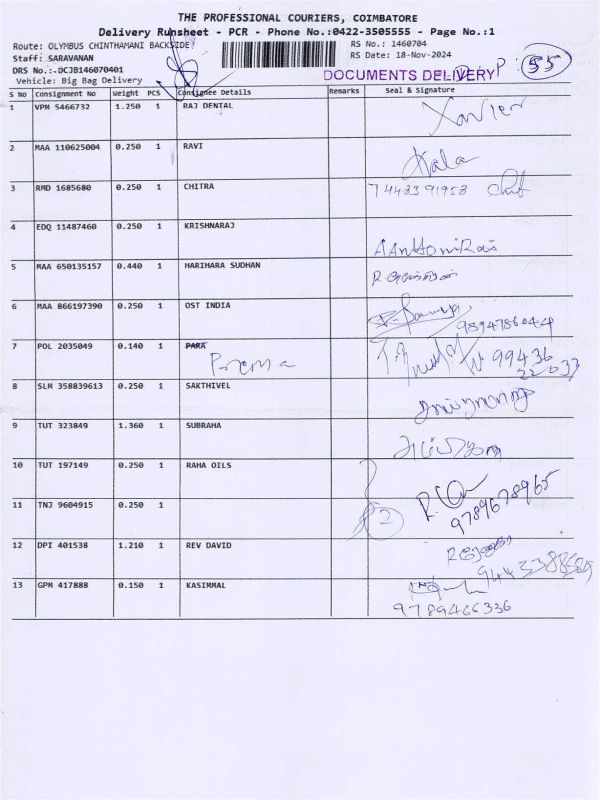 THE PROFESSIONAL COURIERS, COIMBATORE
Delivery Runsheet - PCR - Phone No.:0422-3505555 - Page No.:1
Route: OLYMBUS CHINTHAMANI BACKSIDE/ RS No.: 1460704
Staff: SARAVANAN RS Date: 18-Nov-2024
DRS No.:-DCJB146070401
Vehicle: Big Bag Delivery DOCUMENTS DELIVERY P 55
S No Consignment No Weight PCS Consignee Details Remarks Seal & Signature
1 VPM 5466732 1.250 1 RAJ DENTAL Xavier
2 MAA 110625004 0.250 1 RAVI Kala
3 RMD 1685680 0.250 1 CHITRA
4 EDQ 11487460 0.250 1 KRISHNARAJ
5 MAA 650135157 0.440 1 HARIHARA SUDHAN
6 MAA 866197390 0.250 1 OST INDIA
7 POL 2035049 0.140 1 PARA
Prema 99436
22033
8 SLM 358839613 0.250 1 SAKTHIVEL
9 TUT 323849 1.360 1 SUBRAHA
10 TUT 197149 0.250 1 RAHA OILS
11 TNJ 9604915 0.250 1 2 9789678965
12 DPI 401538 1.210 1 REV DAVID
13 GPM 417888 0.150 1 KASIMMAL
9789466336